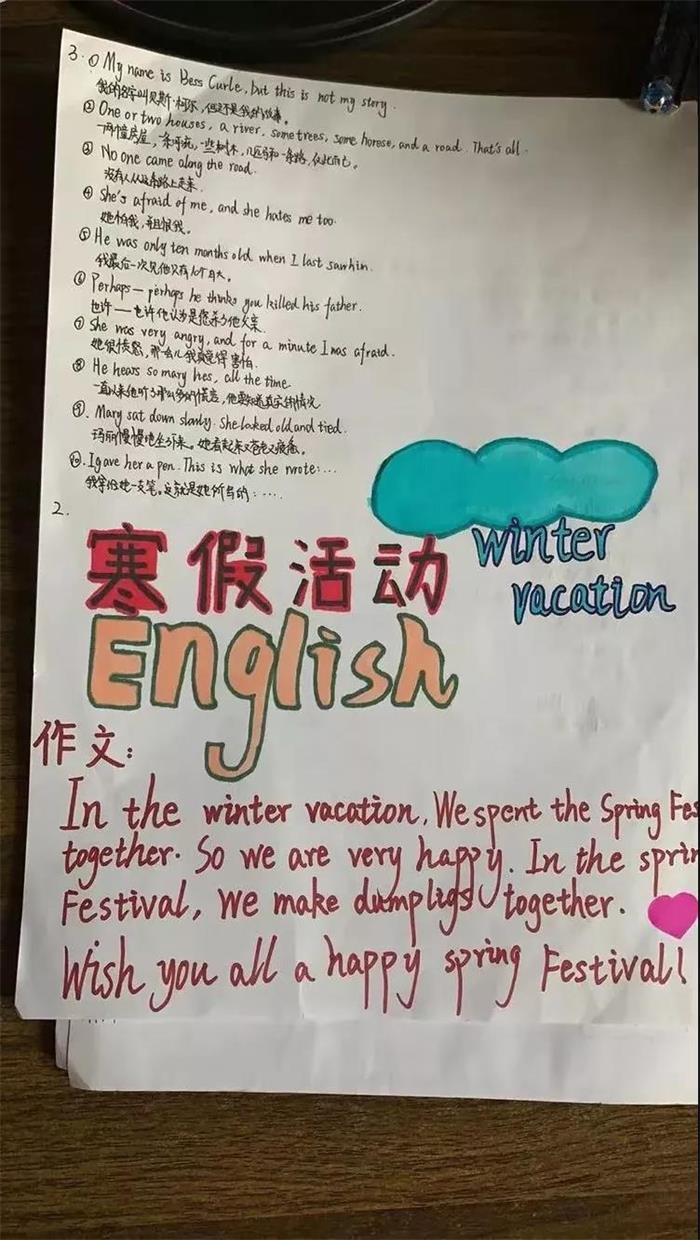 3. ① My name is Bess Curle, but this is not my story.
我的名字叫贝斯·柯尔,但这不是我的故事。
② One or two houses, a river, some trees, some horese, and a road. That's all.
一两幢房屋,一条河流,一些树木,几匹马和一条路,仅此而已。
③ No one came along the road.
没有人从这条路上走来.
④ She's afraid of me, and she hates me too.
她怕我,并且恨我。
⑤ He was only ten months old when I last sawhin.
我最后一次见他只有10个月大。
⑥ Perhaps — perhaps he thinks you killed his father.
也许——也许他认为是您杀了他父亲.
⑦ She was very angry, and for a minute I was afraid.
她很愤怒,那一会儿我真觉得害怕.
⑧ He hears so mary lies, all the time.
一直以来他听了那么多的谎言,他要知道真实的情况
⑨. Mary sat down slanly. She looked old and tied.
玛丽慢慢地坐下来。她看起来又苍老又疲惫。
⑩. I gave her a pen. This is what she wrote: ...
我拿给她一支笔。这就是她所写的:....
2.
寒假活动
winter
vacation
English
作文:
In the winter vacation, We spent the Spring Fes
together. So we are very happy. In the sprin
Festival, We make dumpligs together.
Wish you all a happy spring Festival!